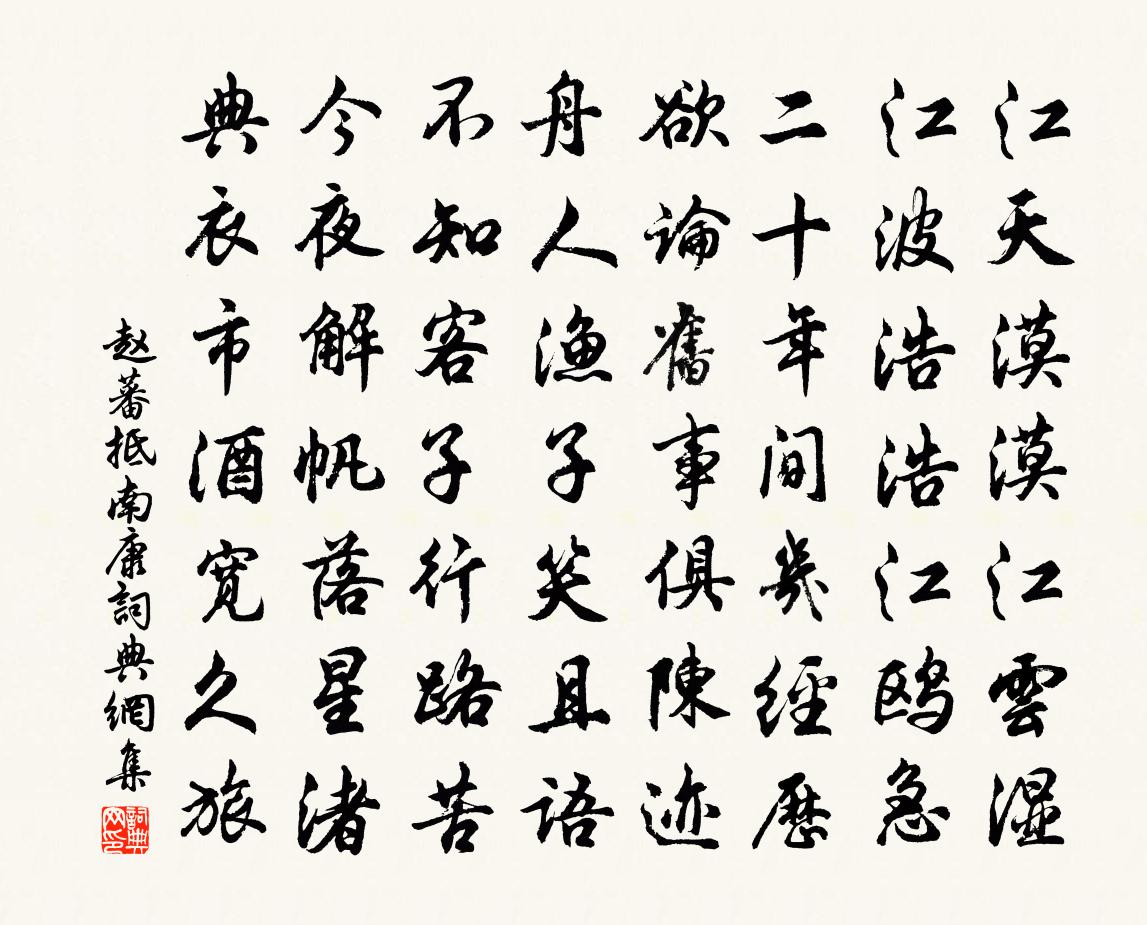 江天漠漠江雲湿
江波浩浩江鸥急
二十年间幾經歷
欲論舊事俱陳迹
舟人漁子笑且语
不知客子行路苦
今夜解帆落星渚
典衣市酒寬久旅
赵蕃抵南康詞典網集
詞典网印